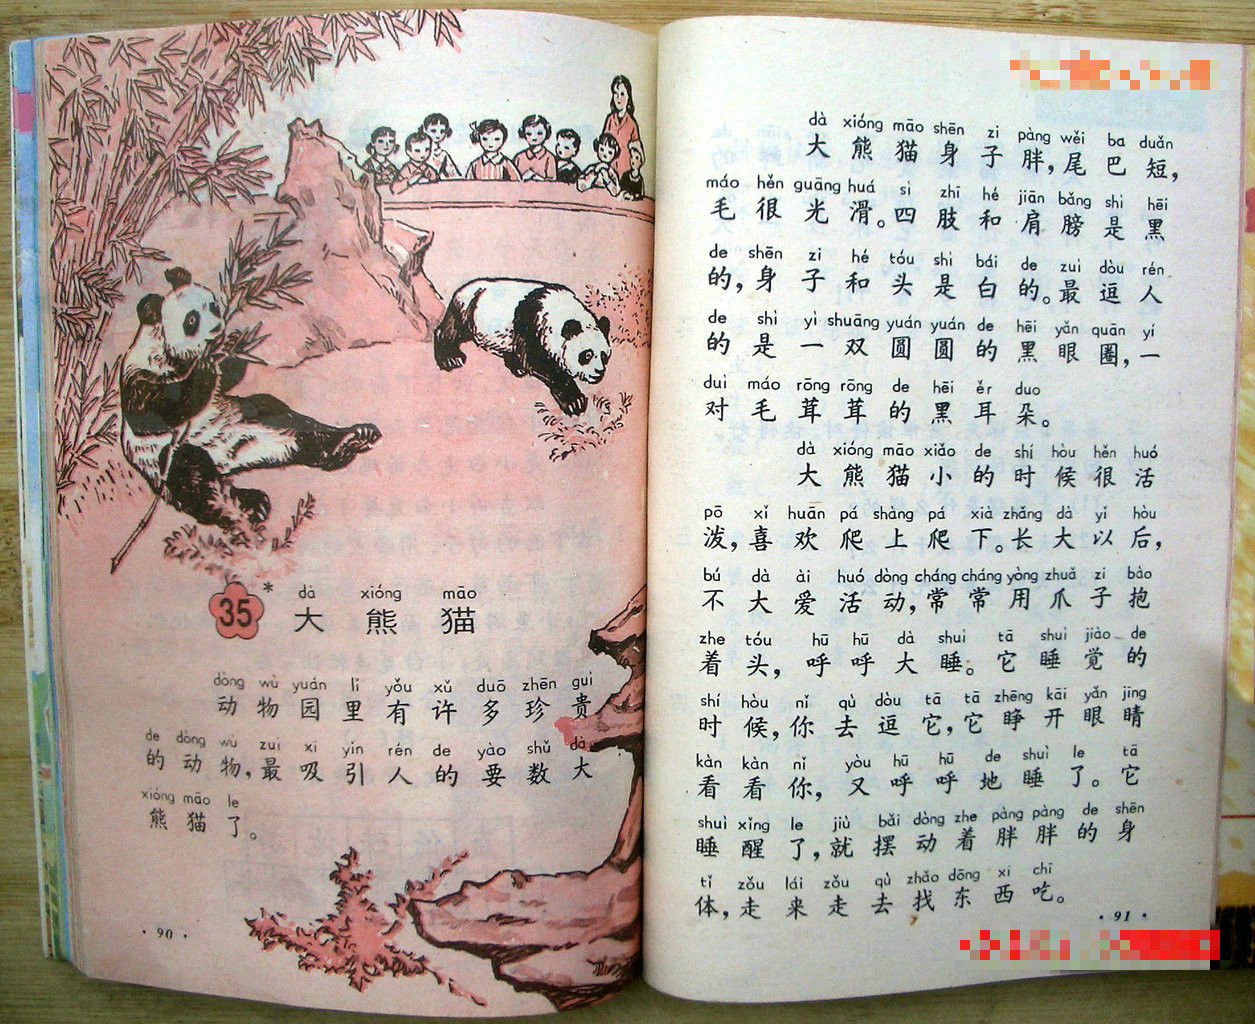 35 *
dà xióng māo
大熊猫
dòng wù yuán lǐ yǒu xǔ duō zhēn guì
动物园里有许多珍贵
de dòng wù zuì xī yǐn rén de yào shǔ dà
的动物,最吸引人的要数大
xióng māo le
熊猫了。
· 90 ·
dà xióng māo shēn zi pàng wěi ba duǎn
大熊猫身子胖,尾巴短,
máo hěn guāng huá sì zhī hé jiān bǎng shì hēi
毛很光滑。四肢和肩膀是黑
de shēn zi hé tóu shì bái de zuì dòu rén
的,身子和头是白的。最逗人
de shì yì shuāng yuán yuán de hēi yǎn quān yí
的是一双圆圆的黑眼圈,一
duì máo rōng rōng de hēi ěr duo
对毛茸茸的黑耳朵。
dà xióng māo xiǎo de shí hòu hěn huó
大熊猫小的时候很活
pō xǐ huān pá shàng pá xià zhǎng dà yǐ hòu
泼,喜欢爬上爬下。长大以后,
bú dà ài huó dòng cháng cháng yòng zhuǎ zi bào
不大爱活动,常常用爪子抱
zhe tóu hū hū dà shuì tā shuì jiào de
着头,呼呼大睡。它睡觉的
shí hòu nǐ qù dòu tā tā zhēng kāi yǎn jīng
时候,你去逗它,它睁开眼睛
kàn kàn nǐ yòu hū hū de shuì le tā
看看你,又呼呼地睡了。它
shuì xǐng le jiù bǎi dòng zhe pàng pàng de shēn
睡醒了,就摆动着胖胖的身
tǐ zǒu lái zǒu qù zhǎo dōng xi chī
体,走来走去找东西吃。
· 91 ·